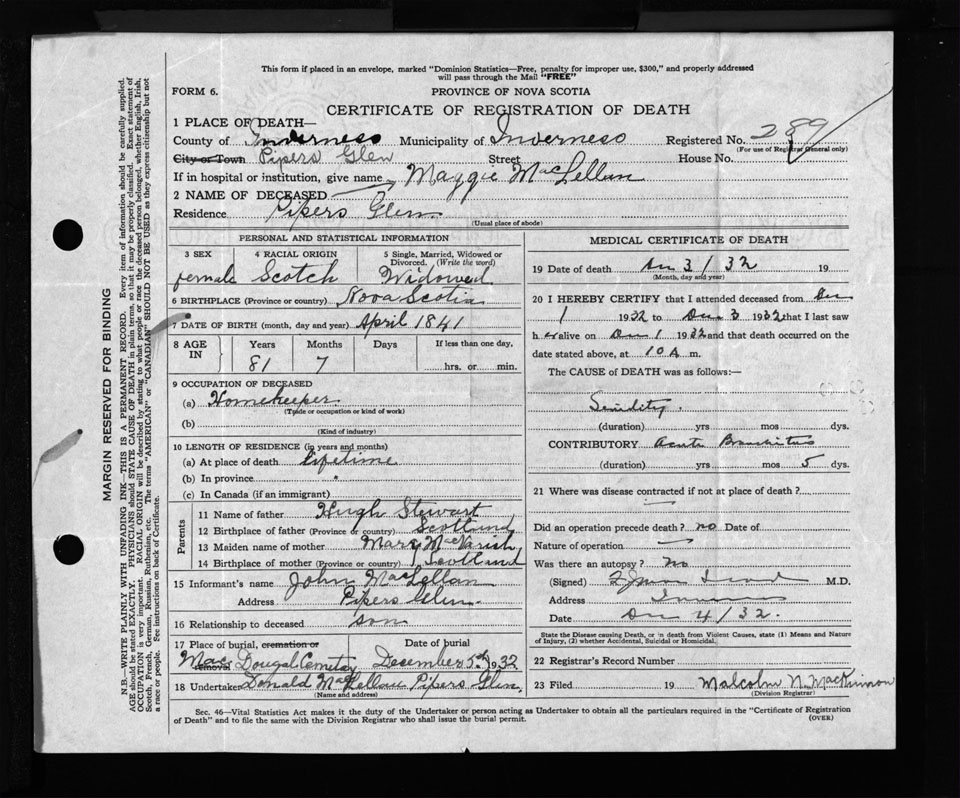 This form if placed in an envelope, marked "Dominion Statistics—Free, penalty for improper use, $300," and properly addressed
will pass through the Mail "FREE"
FORM 6.
PROVINCE OF NOVA SCOTIA
CERTIFICATE OF REGISTRATION OF DEATH
1 PLACE OF DEATH—
County of Inverness Municipality of Inverness Registered No. 289
(For use of Registrar General only)
City or Town Pipers Glen Street House No.
If in hospital or institution, give name
2 NAME OF DECEASED Maggie MacLellan
Residence Pipers Glen
(Usual place of abode)
PERSONAL AND STATISTICAL INFORMATION
3 SEX 4 RACIAL ORIGIN 5 Single, Married, Widowed or
Divorced. (Write the word)
female Scotch Widowed
6 BIRTHPLACE (Province or country) Nova Scotia
7 DATE OF BIRTH (month, day and year) April 1841
8 AGE IN Years Months Days If less than one day,
81 7 hrs. or min.
9 OCCUPATION OF DECEASED
(a) Homekeeper
(Trade or occupation or kind of work)
(b)
(Kind of industry)
10 LENGTH OF RESIDENCE (in years and months)
(a) At place of death lifetime
(b) In province "
(c) In Canada (if an immigrant)
Parents
11 Name of father Hugh Stewart
12 Birthplace of father (Province or country) Scotland
13 Maiden name of mother Mary MacVarish
14 Birthplace of mother (Province or country) Scotland
15 Informant's name John MacLellan
Address Pipers Glen
16 Relationship to deceased son
17 Place of burial, cremation or removal Date of burial
Mac Dougal Cemetay December 5th 1932
18 Undertaker Donald MacLellan Pipers Glen
(Name and address)
MEDICAL CERTIFICATE OF DEATH
19 Date of death Dec 3/32 19
(Month, day and year)
20 I HEREBY CERTIFY that I attended deceased from Dec
1 1932 to Dec 3 1932 that I last saw
h er alive on Dec 1 1932 and that death occurred on the
date stated above, at 10 A m.
The CAUSE of DEATH was as follows:—
Senility.
(duration) yrs mos dys.
CONTRIBUTORY Acute Bronchitis
(duration) yrs mos 5 dys.
21 Where was disease contracted if not at place of death?
Did an operation precede death? no Date of
Nature of operation —
Was there an autopsy? No
(Signed) M.D.
Address Inverness
Date Dec 4/32.
State the Disease causing Death, or in death from Violent Causes, state (1) Means and Nature
of Injury, (2) whether Accidental, Suicidal or Homicidal.
22 Registrar's Record Number
23 Filed 19 Malcolm N. MacKinnon
(Division Registrar)
Sec. 46—Vital Statistics Act makes it the duty of the Undertaker or person acting as Undertaker to obtain all the particulars required in the "Certificate of Registration
of Death" and to file the same with the Division Registrar who shall issue the burial permit. (OVER)
MARGIN RESERVED FOR BINDING
N.B.—WRITE PLAINLY WITH UNFADING INK—THIS IS A PERMANENT RECORD. Every item of information should be carefully supplied.
AGE should be stated EXACTLY. PHYSICIANS should STATE CAUSE OF DEATH in plain terms, so that it may be properly classified. Exact statement of
OCCUPATION is very important. RACIAL ORIGIN will be described by stating to what people or race the deceased person belonged, whether English, Irish,
Scotch, French, German, Russian, Ruthenian, etc. The terms "AMERICAN" or "CANADIAN" SHOULD NOT BE USED as they express citizenship but not
a race or people. See instructions on back of Certificate.